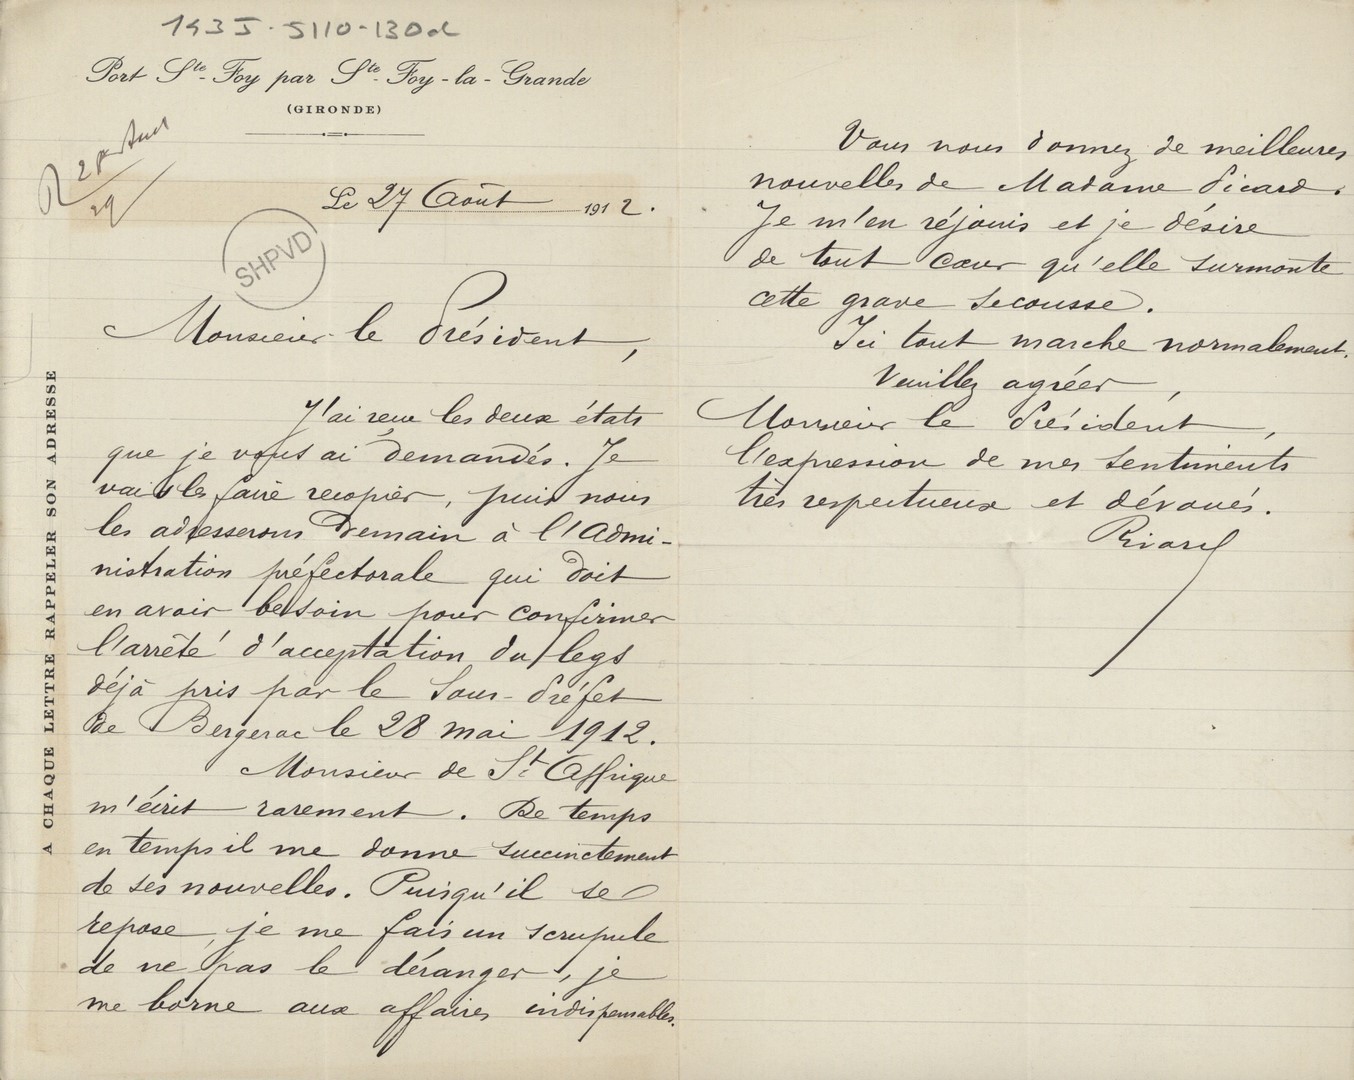 143J-5110-130d
Port Ste-Foy par Ste-Foy-la-Grande
(GIRONDE)
R 2
29
Le 27 Août 1912.
SHPVD
Monsieur le Président,
A CHAQUE LETTRE RAPPELER SON ADRESSE
J'ai reçu les deux états
que je vous ai demandés. Je
vais les faire recopier, puis nous
les adresserons demain à l'Admi-
nistration préfectorale qui doit
en avoir besoin pour confirmer
l'arrêté d'acceptation du legs
déjà pris par le Sous-Préfet
de Bergerac le 28 mai 1912.
Monsieur de St Affrique
m'écrit rarement. De temps
en temps il me donne succinctement
de ses nouvelles. Puisqu'il se
repose, je me fais un scrupule
de ne pas le déranger, je
me borne aux affaires indispensables.
Vous nous donnez de meilleures
nouvelles de Madame Picard.
Je m'en réjouis et je désire
de tout cœur qu'elle surmonte
cette grave secousse.
Ici tout marche normalement.
Veuillez agréer,
Monsieur le Président,
l'expression de mes sentiments
très respectueux et dévoués.